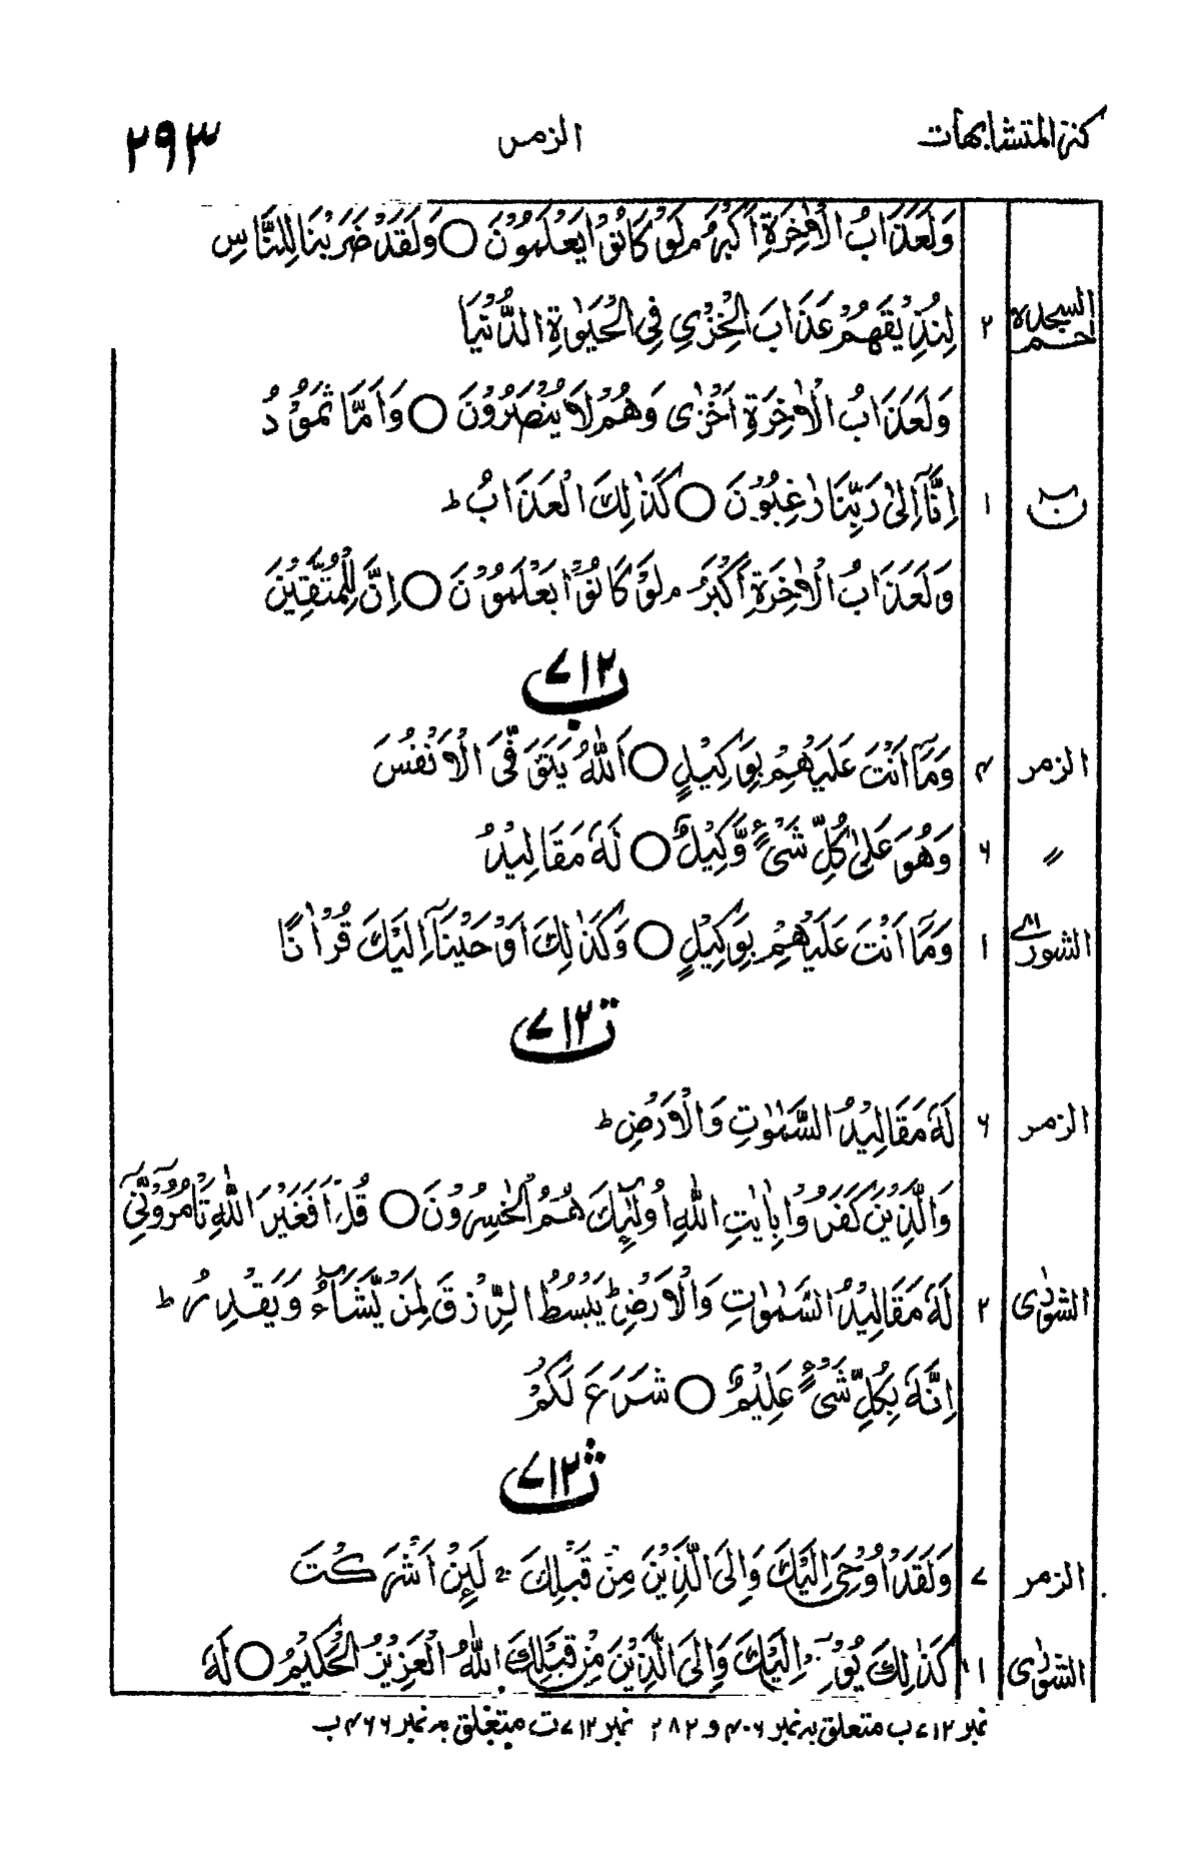 كنز المتشابهات الزمر ٢٩٣
وَلَعَذَابُ الْاٰخِرَةِ اَكْبَرُ م لَوْ كَانُوْا يَعْلَمُوْنَ ○ وَلَقَدْ ضَرَبْنَا لِلنَّاسِ
السجدة حٰم ٢ لِنُذِيْقَهُمْ عَذَابَ الْخِزْيِ فِي الْحَيٰوةِ الدُّنْيَا
وَلَعَذَابُ الْاٰخِرَةِ اَخْزٰى وَهُمْ لَا يُنْصَرُوْنَ ○ وَاَمَّا ثَمُوْدُ
نٓ ١ اِنَّآ اِلٰى رَبِّنَا رٰغِبُوْنَ ○ كَذٰلِكَ الْعَذَابُ ط
وَلَعَذَابُ الْاٰخِرَةِ اَكْبَرُ م لَوْ كَانُوْا يَعْلَمُوْنَ ○ اِنَّ لِلْمُتَّقِيْنَ
٧١٢ ب
الزمر ۴ وَمَآ اَنْتَ عَلَيْهِمْ بِوَكِيْلٍ ○ اَللّٰهُ يَتَوَفَّى الْاَنْفُسَ
〃 ٦ وَهُوَ عَلٰى كُلِّ شَىْءٍ وَّكِيْلٌ ○ لَهٗ مَقَالِيْدُ
الشورى ١ وَمَآ اَنْتَ عَلَيْهِمْ بِوَكِيْلٍ ○ وَكَذٰلِكَ اَوْحَيْنَآ اِلَيْكَ قُرْاٰنًا
٧١٢ ت
الزمر ٦ لَهٗ مَقَالِيْدُ السَّمٰوٰتِ وَالْاَرْضِ ط
وَالَّذِيْنَ كَفَرُوْا بِاٰيٰتِ اللّٰهِ اُولٰٓئِكَ هُمُ الْخٰسِرُوْنَ ○ قُلْ اَفَغَيْرَ اللّٰهِ تَاْمُرُوْٓنِّيْٓ
الشورٰى ٢ لَهٗ مَقَالِيْدُ السَّمٰوٰتِ وَالْاَرْضِ ۚ يَبْسُطُ الرِّزْقَ لِمَنْ يَّشَآءُ وَيَقْدِرُ ط
اِنَّهٗ بِكُلِّ شَىْءٍ عَلِيْمٌ ○ شَرَعَ لَكُمْ
٧١٢ ث
الزمر ٧ وَلَقَدْ اُوْحِيَ اِلَيْكَ وَاِلَى الَّذِيْنَ مِنْ قَبْلِكَ ۚ لَئِنْ اَشْرَكْتَ
الشورٰى ١ كَذٰلِكَ يُوْحِيْٓ اِلَيْكَ وَاِلَى الَّذِيْنَ مِنْ قَبْلِكَ اللّٰهُ الْعَزِيْزُ الْحَكِيْمُ ○ لَهٗ
نمبر ٧١٢ ب متعلق به نمبر ۴٠٦ و ٢٨٢ نمبر ٧١٢ ت متعلق به نمبر ۴٦٦ ب